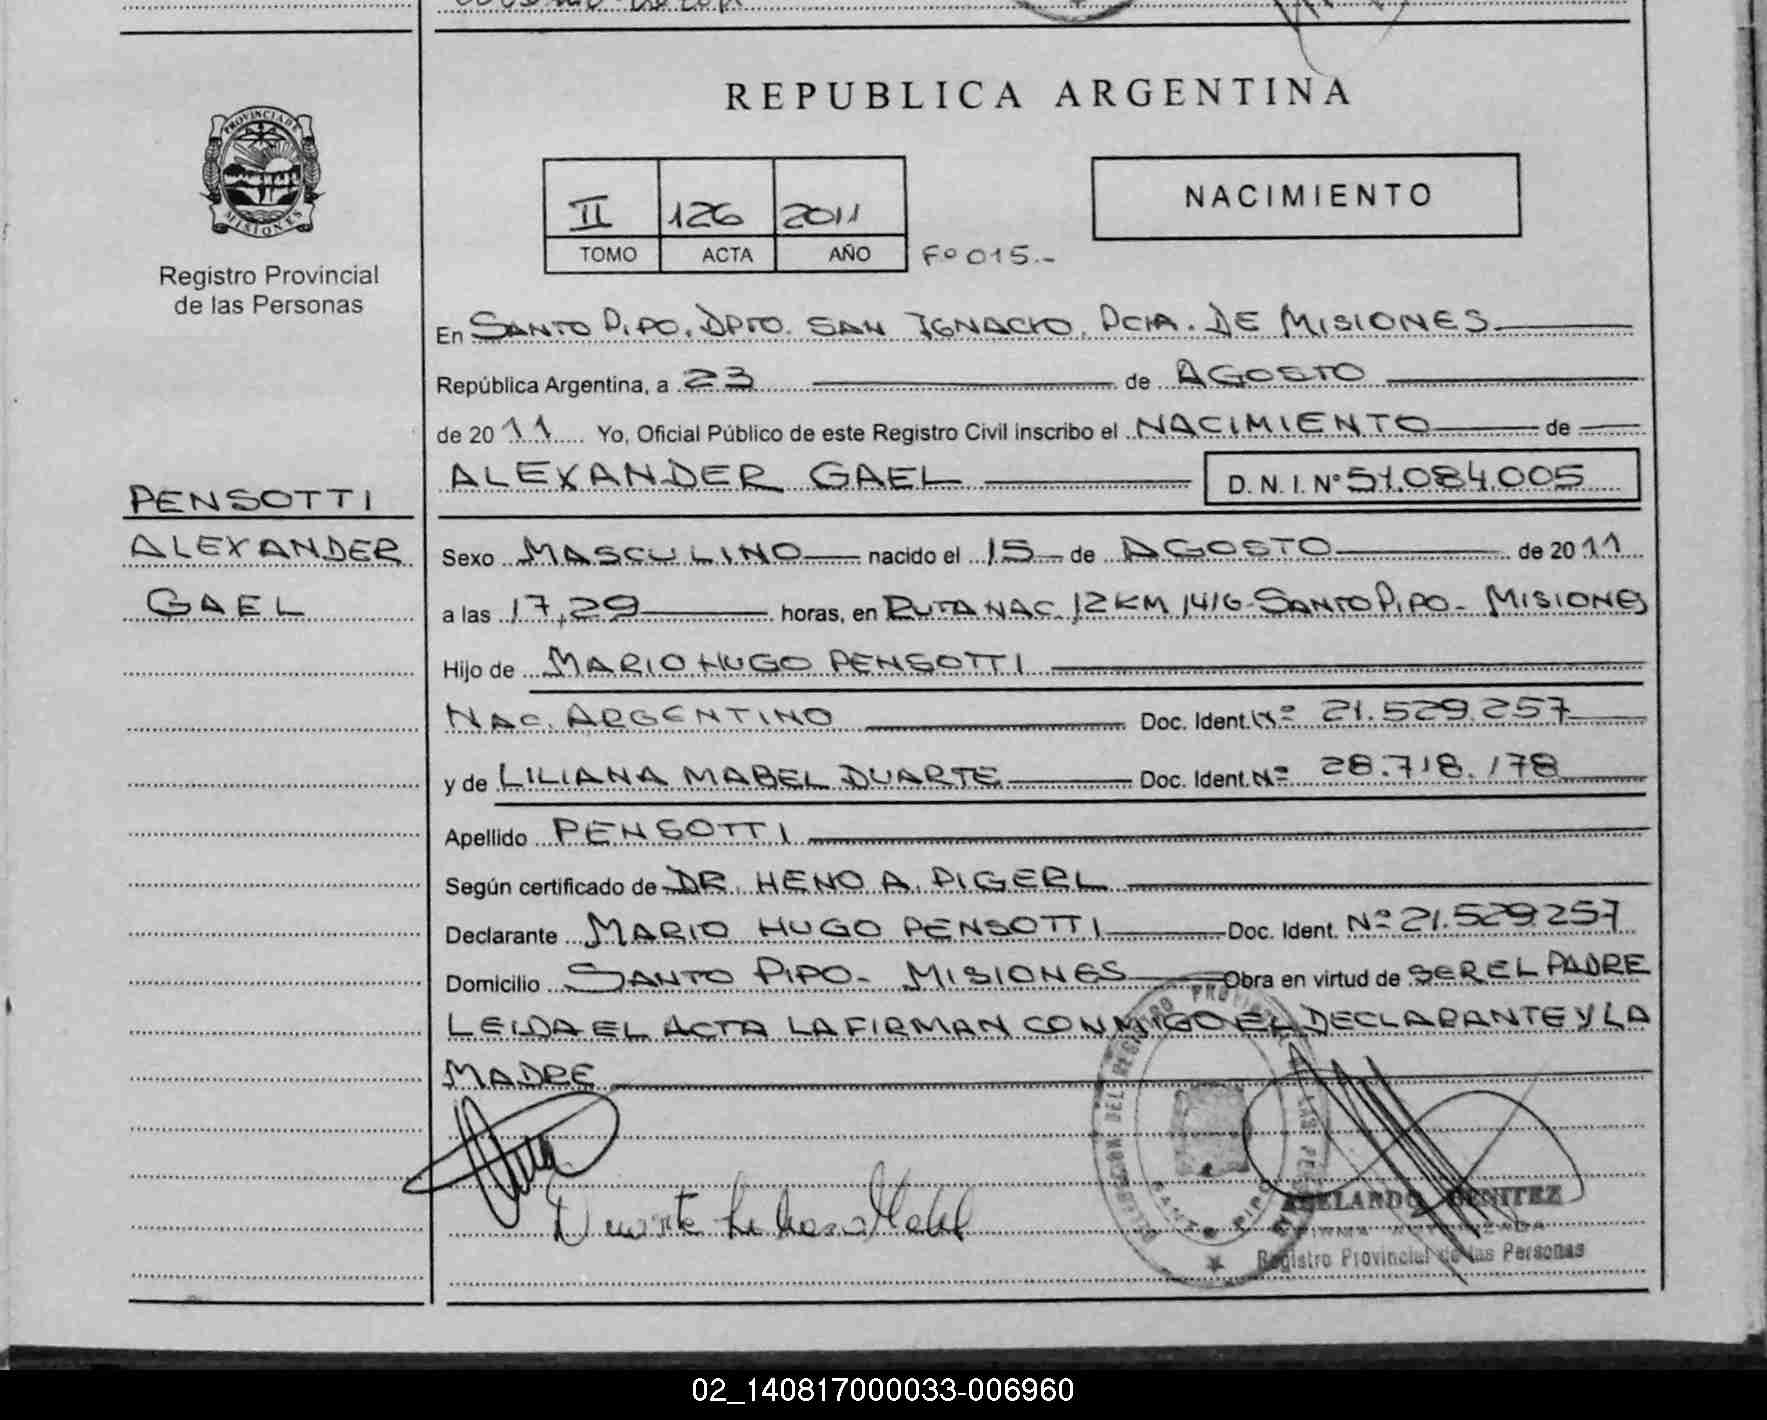 REPUBLICA ARGENTINA
PROVINCIA DE
MISIONES
Registro Provincial
de las Personas
II 126 2011
TOMO ACTA AÑO Fº 015.-
NACIMIENTO
En SANTO PIPO, DPTO. SAN IGNACIO, PCIA. DE MISIONES
República Argentina, a 23 de AGOSTO
de 2011 Yo, Oficial Público de este Registro Civil inscribo el NACIMIENTO de
ALEXANDER GAEL D. N. I. Nº 51.084.005
PENSOTTI
ALEXANDER
GAEL
Sexo MASCULINO nacido el 15 de AGOSTO de 2011
a las 17,29 horas, en RUTA NAC. 12 KM 1416-SANTO PIPO- MISIONES
Hijo de MARIO HUGO PENSOTTI
NAC. ARGENTINO Doc. Ident. Nº 21.529.257
y de LILIANA MABEL DUARTE Doc. Ident. Nº 28.718.178
Apellido PENSOTTI
Según certificado de DR. HENO A. PIGERL
Declarante MARIO HUGO PENSOTTI Doc. Ident. Nº 21.529.257
Domicilio SANTO PIPO- MISIONES Obra en virtud de SER EL PADRE
LEIDA EL ACTA LA FIRMAN CONMIGO EL DECLARANTE Y LA
MADRE
Duarte Liliana Mabel
SANTO PIPO
ABELARDO BENITEZ
FIRMA AUTORIZADA
Registro Provincial de las Personas
02_140817000033-006960